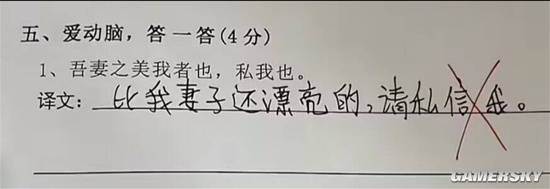 五、爱动脑，答一答(4分)
1、吾妻之美我者也，私我也。
译文：比我妻子还漂亮的，请私信我。
GAMERSKY